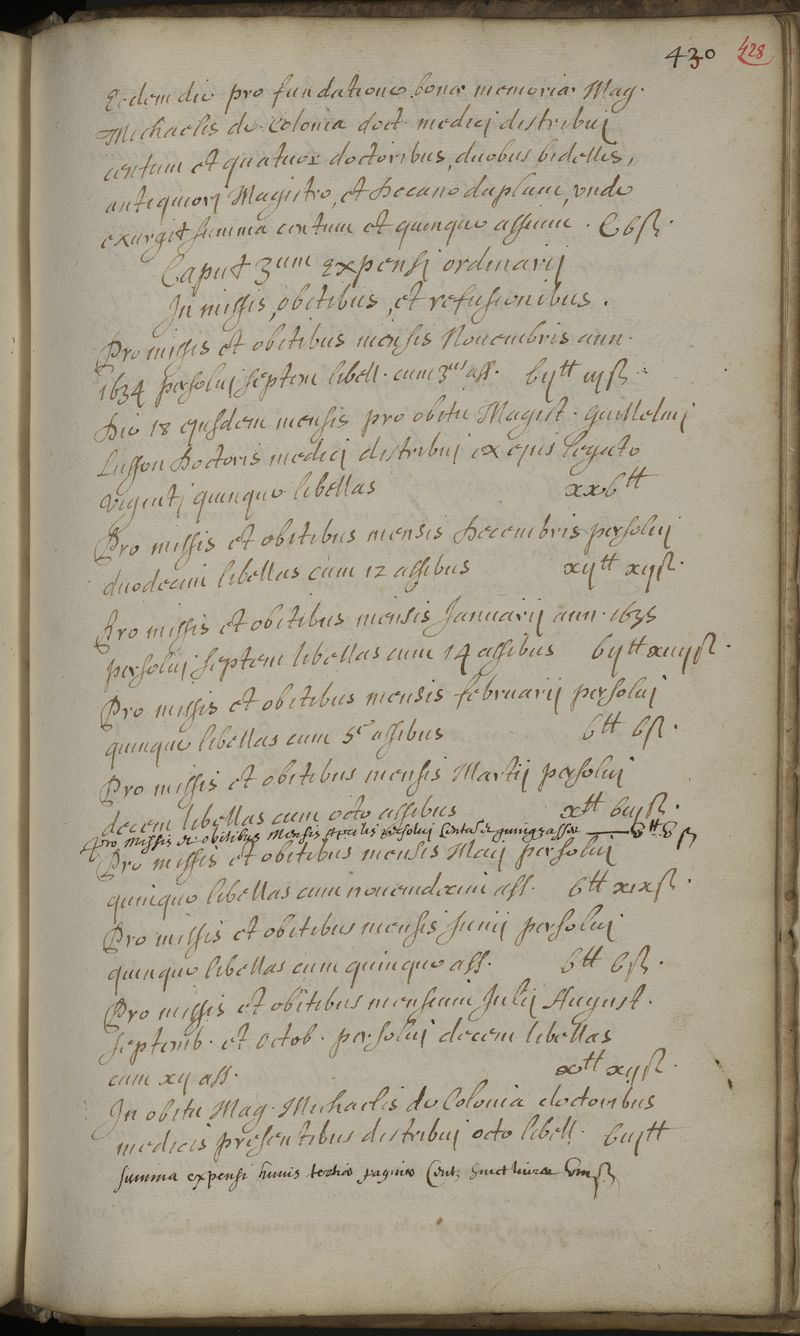 430 428
Eodem die pro fundatione bonæ memoriæ Mag.
Michaelis de Colonia doct. medici distribuj
centum et quatuor doctoribus, duobus bidellis,
antiquiorj Magistro, et Decano duplam, unde
exurgit summa centum et quinque assium . C b ſ.
Caput 3um Expensj ordinarij
In missis, obitibus, et refusionibus.
Pro missis et obitibus mensis Nouembris ann.
1634 persoluj septem libell. cum 3us ass. bij tt iij ſ.
Die 18 ejusdem mensis pro obitu Magist. Guillelmj
Lusson Doctoris medicj distribuj ex ejus legato
vigentj quinque libellas xxb tt
Pro missis et obitibus mensis Decembris persoluj
duodecim libellas cum 12 assibus xij tt xij ſ.
Pro missis et obitibus mensis Januarij ann. 1635
persoluj septem libellas cum 14 assibus bij tt xiiij ſ.
Pro missis et obitibus mensis februarij persoluj
quinque libellas cum 5e assibus b tt b ſ.
Pro missis et obitibus mensis Martij persoluj
decem libellas cum octo assibus x tt biij ſ.
Pro missis et obitibus mensis Aprilis persoluj quinq3 asse
Pro missis et obitibus mensis Maij persoluj
quinque libellas cum nouemdecim ass. b tt xix ſ.
Pro missis et obitibus mensis Junij persoluj
quinque libellas cum quinque ass. b tt b ſ.
Pro missis et obitibus mensium Julij August.
septemb. et octob. persoluj decem libellas
cum xij ass. x tt xij ſ.
In obitu Mag. Michaelis de Colonia doctoribus
medicis presentibus distribuj octo libell. biij tt
summa expensi huius tertiæ paginæ